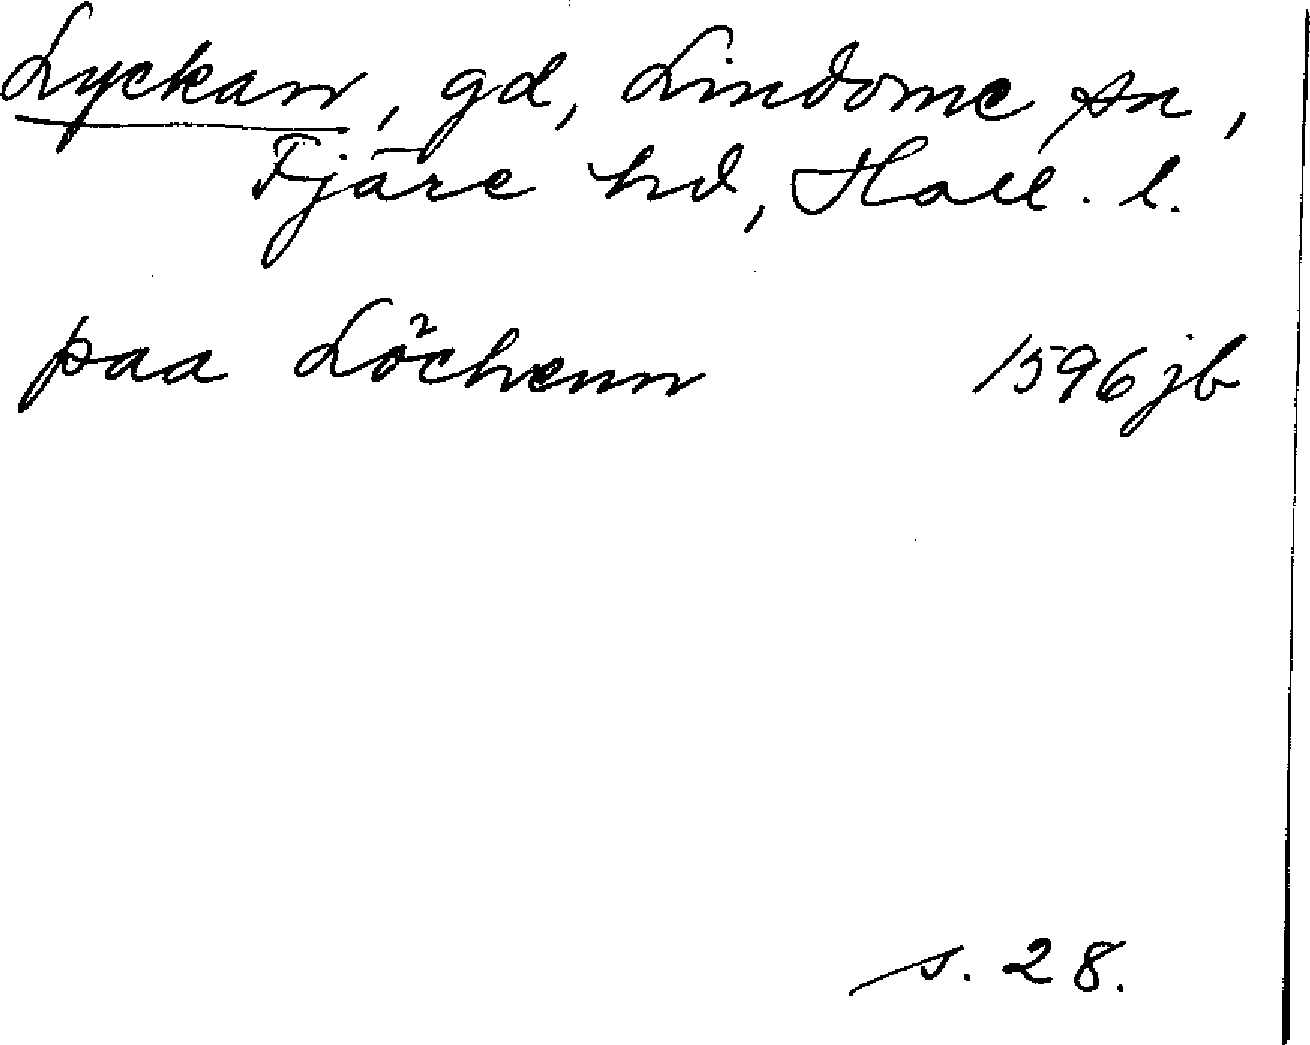 Lyckan, gd, Lindome sn,
Fjäre hd, Hall. l.
paa Löchenn 1596 jb
s. 28.